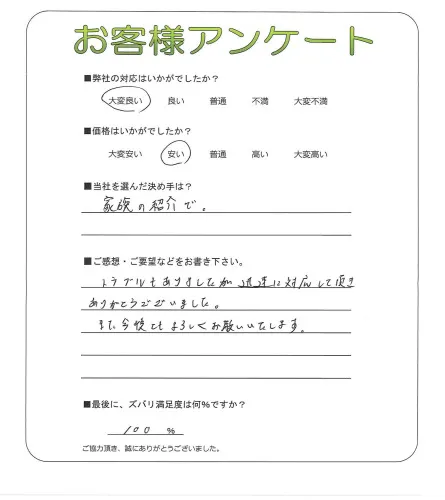 お客様アンケート
■弊社の対応はいかがでしたか?
大変良い 良い 普通 不満 大変不満
■価格はいかがでしたか?
大変安い 安い 普通 高い 大変高い
■当社を選んだ決め手は?
家族の紹介で。
■ご感想・ご要望などをお書き下さい。
トラブルもありましたが迅速に対応して頂き
ありがとうございました。
また今後ともよろしくお願いいたします。
■最後に、ズバリ満足度は何%ですか?
100 %
ご協力頂き、誠にありがとうございました。